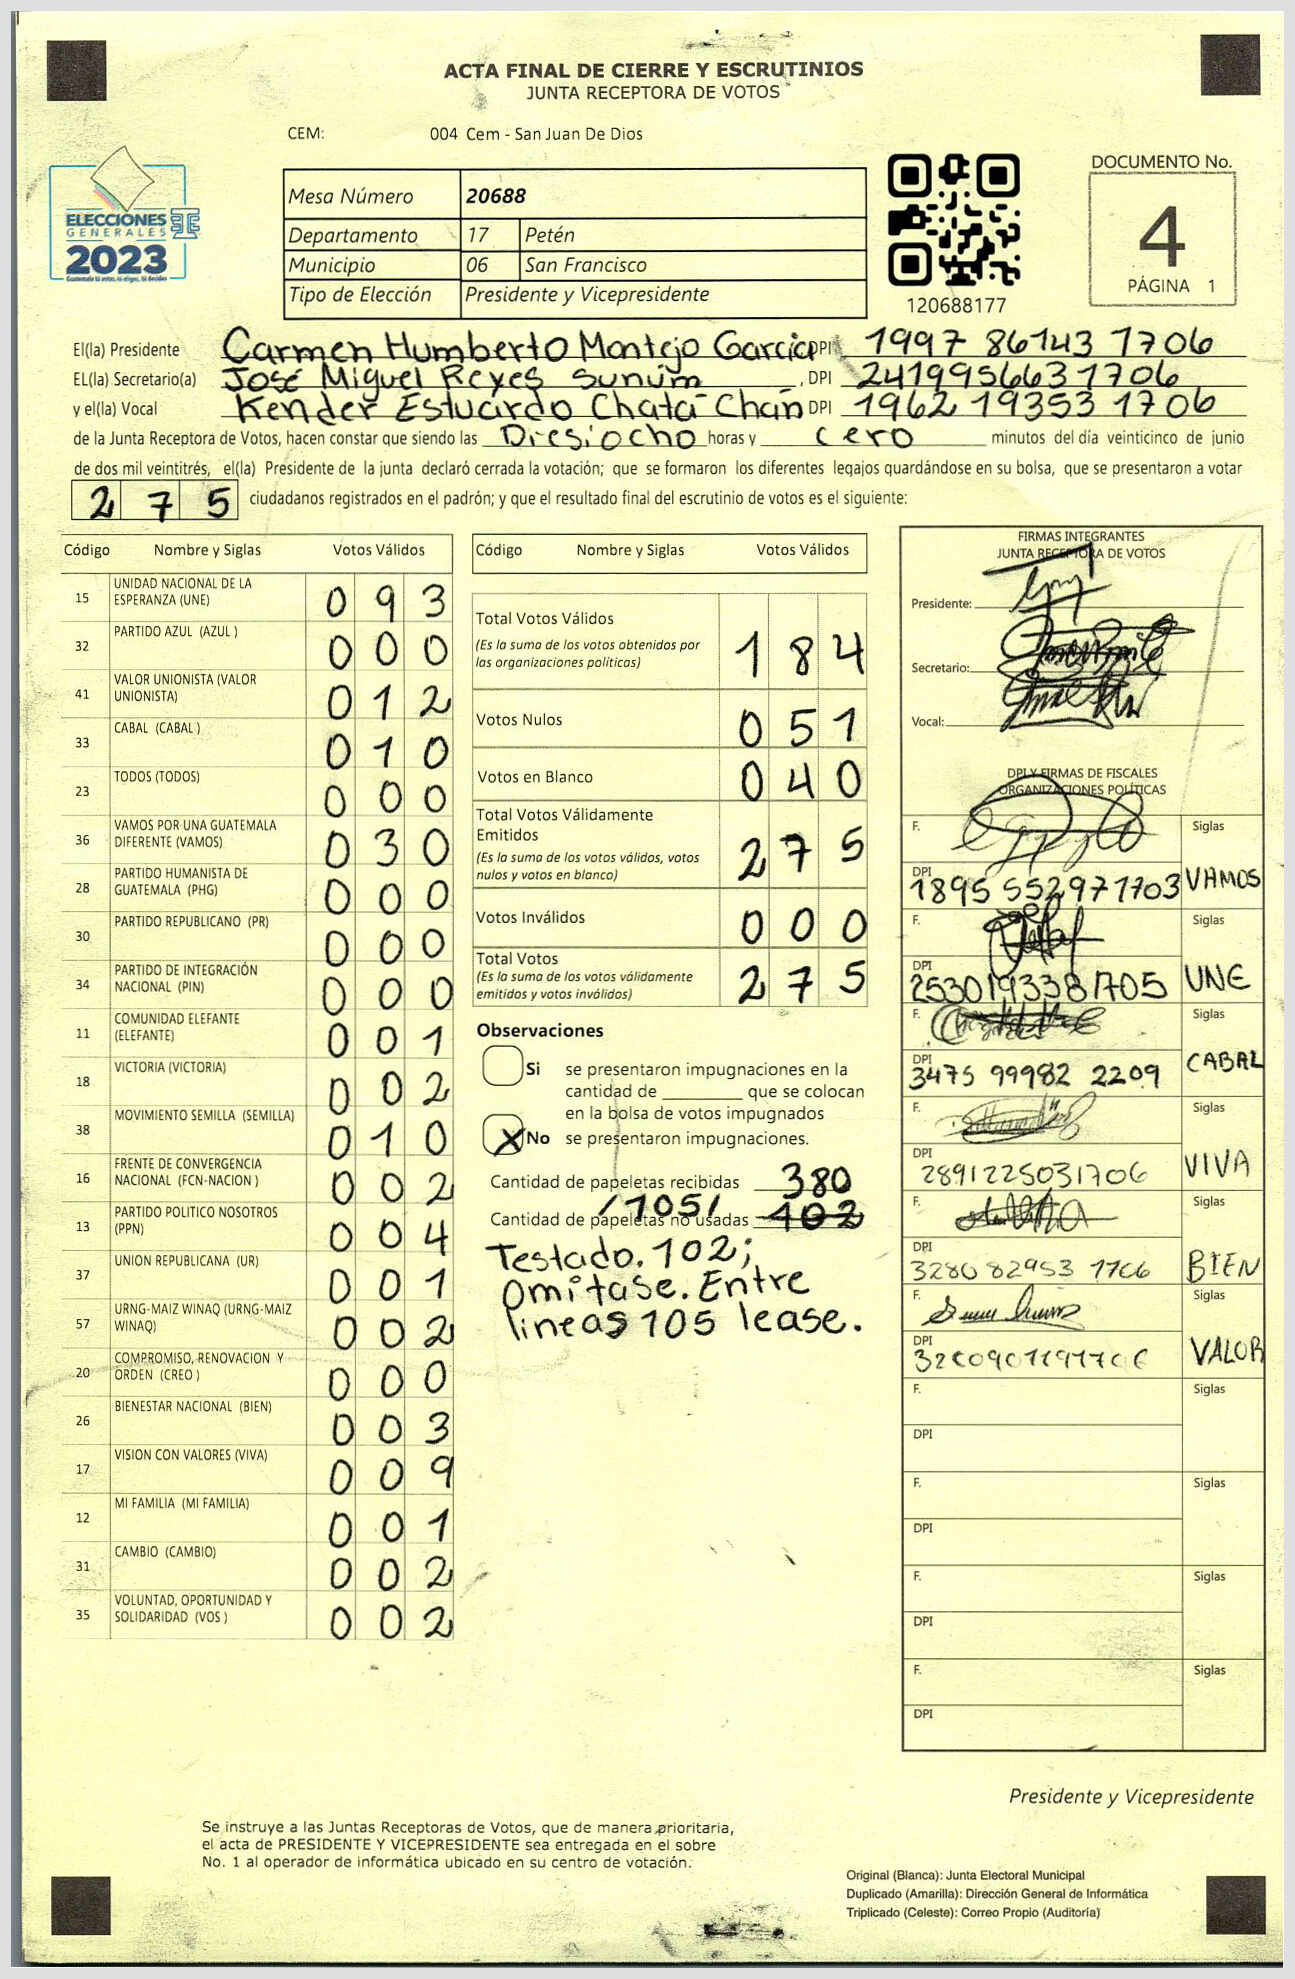 ACTA FINAL DE CIERRE Y ESCRUTINIOS
JUNTA RECEPTORA DE VOTOS
CEM: 004 Cem - San Juan De Dios
ELECCIONES
GENERALES
2023
Mesa Número 20688
Departamento 17 Petén
Municipio 06 San Francisco
Tipo de Elección Presidente y Vicepresidente
120688177
DOCUMENTO No.
4
PÁGINA 1
El(la) Presidente Carmen Humberto Montejo Garcia DPI 1997 86143 1706
EL(la) Secretario(a) José Miguel Reyes Sunúm, DPI 2419956631706
y el(la) Vocal Kender Estuardo Chatá Chan DPI 1962 19353 1706
de la Junta Receptora de Votos, hacen constar que siendo las Diesiocho horas y cero minutos del día veinticinco de junio
de dos mil veintitrés, el(la) Presidente de la junta declaró cerrada la votación; que se formaron los diferentes legajos guardándose en su bolsa, que se presentaron a votar
275 ciudadanos registrados en el padrón; y que el resultado final del escrutinio de votos es el siguiente:
Código Nombre y Siglas Votos Válidos
15 UNIDAD NACIONAL DE LA ESPERANZA (UNE) 093
32 PARTIDO AZUL (AZUL ) 000
41 VALOR UNIONISTA (VALOR UNIONISTA) 012
33 CABAL (CABAL ) 010
23 TODOS (TODOS) 000
36 VAMOS POR UNA GUATEMALA DIFERENTE (VAMOS) 030
28 PARTIDO HUMANISTA DE GUATEMALA (PHG) 000
30 PARTIDO REPUBLICANO (PR) 000
34 PARTIDO DE INTEGRACIÓN NACIONAL (PIN) 000
11 COMUNIDAD ELEFANTE (ELEFANTE) 001
18 VICTORIA (VICTORIA) 002
38 MOVIMIENTO SEMILLA (SEMILLA) 010
16 FRENTE DE CONVERGENCIA NACIONAL (FCN-NACION ) 002
13 PARTIDO POLITICO NOSOTROS (PPN) 004
37 UNION REPUBLICANA (UR) 001
57 URNG-MAIZ WINAQ (URNG-MAIZ WINAQ) 002
20 COMPROMISO, RENOVACION Y ORDEN (CREO ) 000
26 BIENESTAR NACIONAL (BIEN) 003
17 VISION CON VALORES (VIVA) 009
12 MI FAMILIA (MI FAMILIA) 001
31 CAMBIO (CAMBIO) 002
35 VOLUNTAD, OPORTUNIDAD Y SOLIDARIDAD (VOS ) 002
Código Nombre y Siglas Votos Válidos
Total Votos Válidos 184
(Es la suma de los votos obtenidos por
las organizaciones políticas)
Votos Nulos 051
Votos en Blanco 040
Total Votos Válidamente
Emitidos 275
(Es la suma de los votos válidos, votos
nulos y votos en blanco)
Votos Inválidos 000
Total Votos 275
(Es la suma de los votos válidamente
emitidos y votos inválidos)
Observaciones
Si se presentaron impugnaciones en la
cantidad de ________ que se colocan
en la bolsa de votos impugnados
X No se presentaron impugnaciones.
Cantidad de papeletas recibidas 380
/105/
Cantidad de papeletas no usadas 102
Testado. 102;
Omitase. Entre
lineas 105 lease.
FIRMAS INTEGRANTES
JUNTA RECEPTORA DE VOTOS
Presidente:
Secretario:
Vocal:
DPI Y FIRMAS DE FISCALES
ORGANIZACIONES POLÍTICAS
F. Siglas
DPI 1895 55297 1703 VAMOS
F. Siglas
DPI 2530193381705 UNE
F. Siglas
DPI 3475 99982 2209 CABAL
F. Siglas
DPI 2891225031706 VIVA
F. Siglas
DPI 3280 82953 1706 BIEN
F. Siglas
DPI VALOR
F. Siglas
DPI
F. Siglas
DPI
F. Siglas
DPI
F. Siglas
DPI
Presidente y Vicepresidente
Se instruye a las Juntas Receptoras de Votos, que de manera prioritaria,
el acta de PRESIDENTE Y VICEPRESIDENTE sea entregada en el sobre
No. 1 al operador de informática ubicado en su centro de votación.
Original (Blanca): Junta Electoral Municipal
Duplicado (Amarilla): Dirección General de Informática
Triplicado (Celeste): Correo Propio (Auditoría)